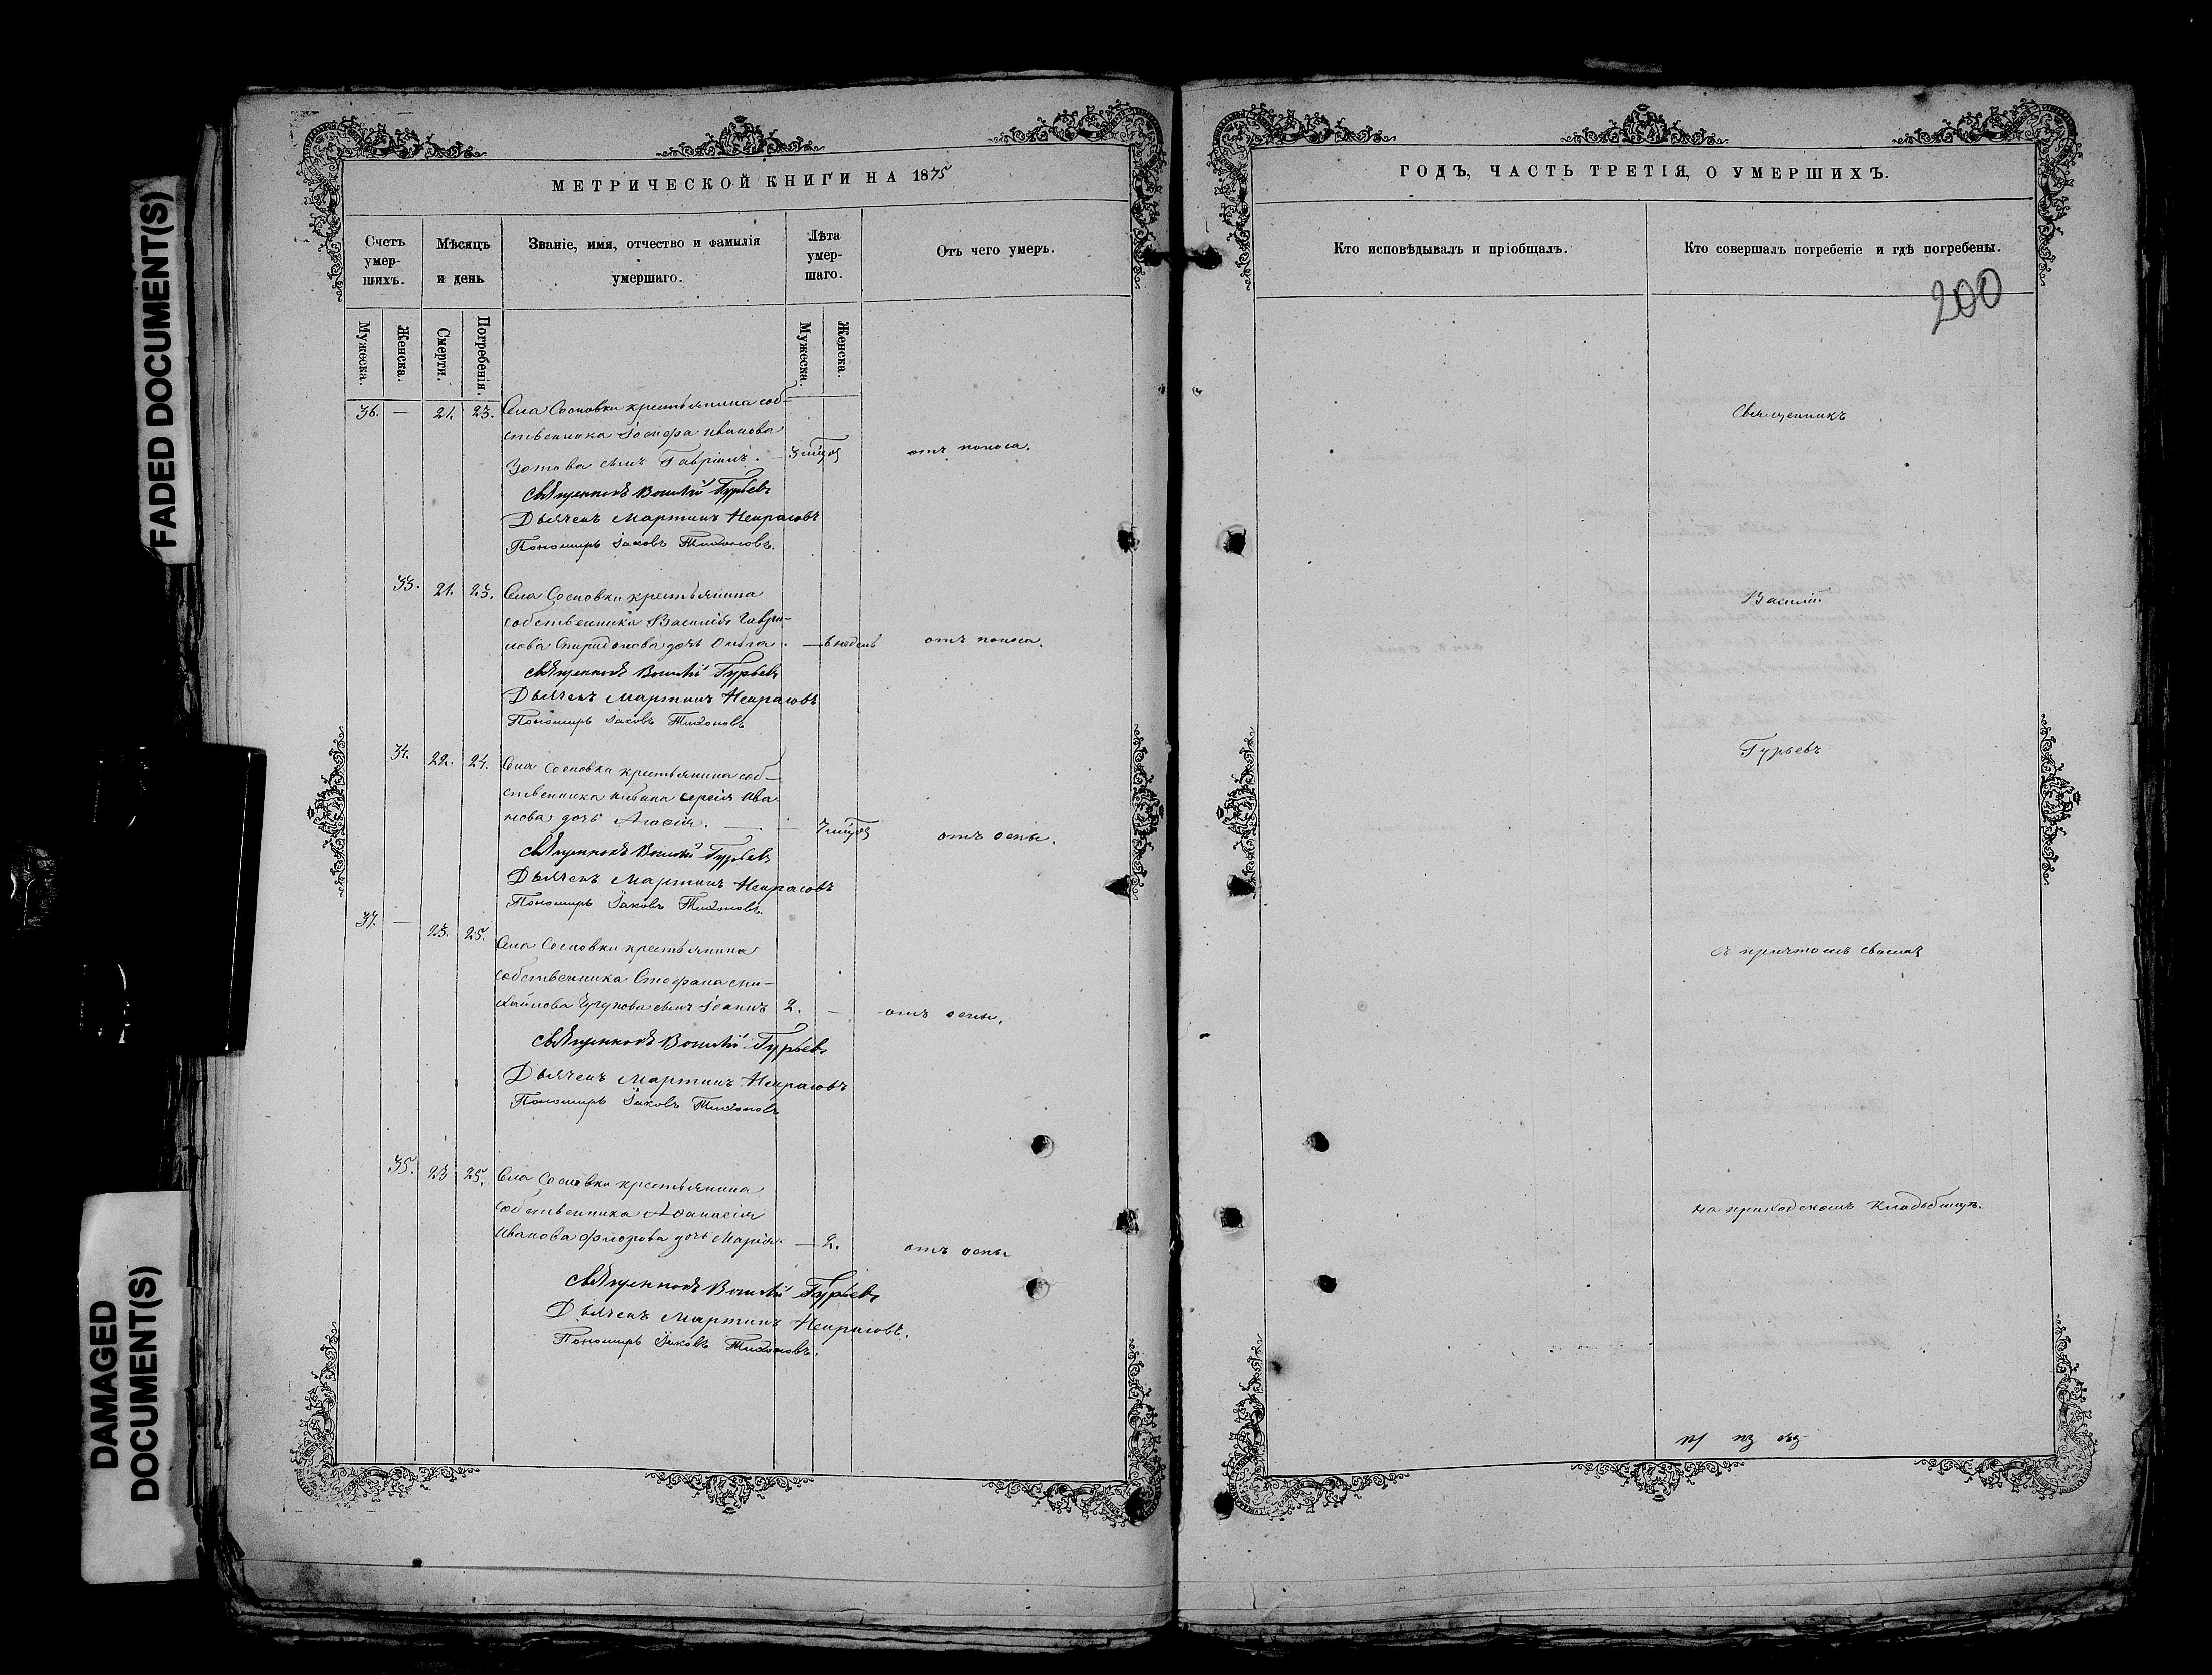 FADED DOCUMENT(S)
DAMAGED
DOCUMENT(S)
МЕТРИЧЕСКОЙ КНИГИ НА 1875
Счетъ умер- шихъ.
Мѣсяцъ и день
Званіе, имя, отчество и фамилія умершаго.
Лѣта умер- шаго.
Отъ чего умеръ.
Мужеска.
Женска.
Смерти.
Погребенія.
Мужеска.
Женска.
36. — 21. 23. Села Сосновки крестьянина соб-
ственника Іосифа Иванова
Зотова сынъ Гавріилъ. 3 отъ поноса.
Священникъ Василій Гурьевъ
Дьячекъ Мартинъ Некрасовъ
Пономарь Іаковъ Тихоновъ.
33. 21. 23. Села Сосновки крестьянина
собственника Василія Гаври-
лова Спиридонова дочь Ольга. — недель отъ поноса.
Священникъ Василій Гурьевъ
Дьячекъ Мартинъ Некрасовъ
Пономарь Іаковъ Тихоновъ
34. 22. 24. Села Сосновки крестьянина соб-
ственника Сергія Ива-
нова дочь — 7 отъ оспы.
Священникъ Василій Гурьевъ
Дьячекъ Мартинъ Некрасовъ
Пономарь Іаковъ Тихоновъ.
37. — 23. 25. Села Сосновки крестьянина
собственника Стефана Ми-
хайлова сынъ Іоаннъ 2. — отъ оспы.
Священникъ Василій Гурьевъ
Дьячекъ Мартинъ Некрасовъ
Пономарь Іаковъ Тихоновъ
35. 23 25. Села Сосновки крестьянина
собственника Аѳанасія
Иванова дочь Марія. — 2. отъ оспы
Священникъ Василій Гурьевъ
Дьячекъ Мартинъ Некрасовъ.
Пономарь Іаковъ Тихоновъ.
ГОДЪ, ЧАСТЬ ТРЕТІЯ, О УМЕРШИХЪ.
Кто исповѣдывалъ и пріобщалъ.
Кто совершалъ погребеніе и гдѣ погребены.
200
Священникъ
Василій
Гурьевъ
съ причтомъ своимъ
на приходскомъ кладбищѣ.